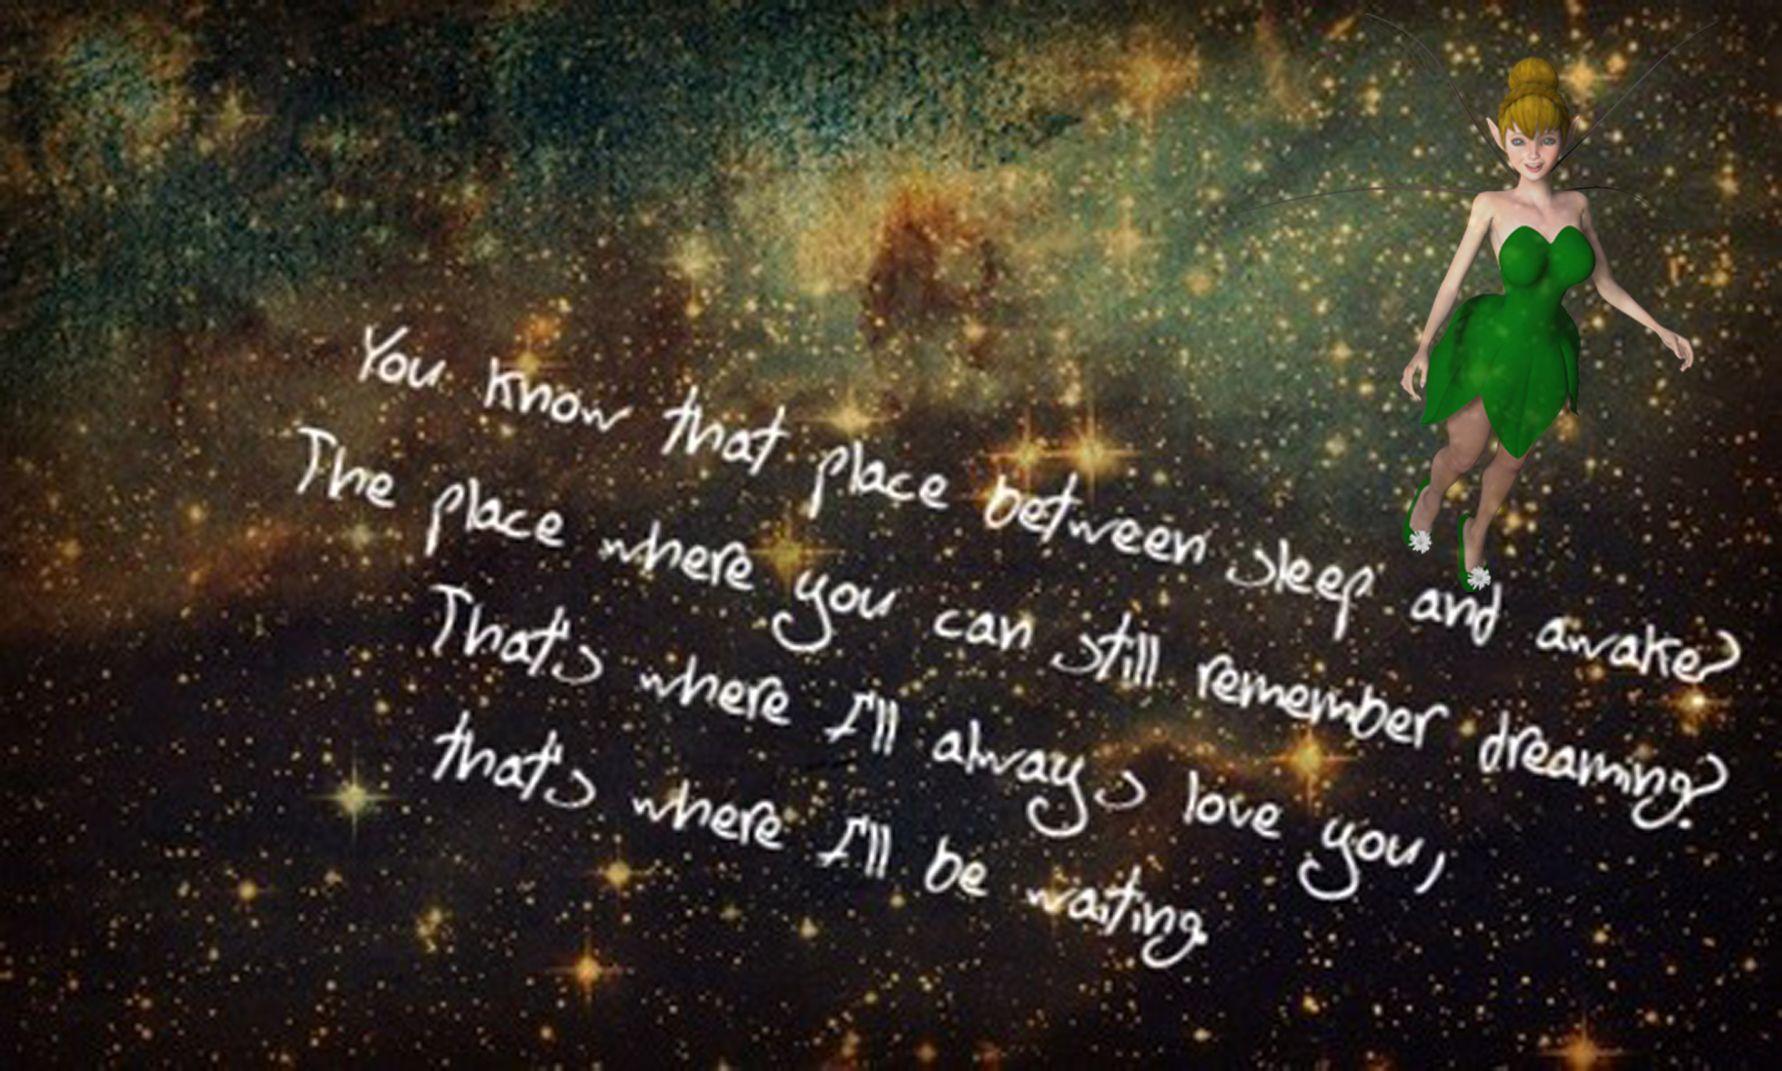 You know that place between sleep and awake?
The place where you can still remember dreaming?
That's where I'll always love you,
that's where I'll be waiting.